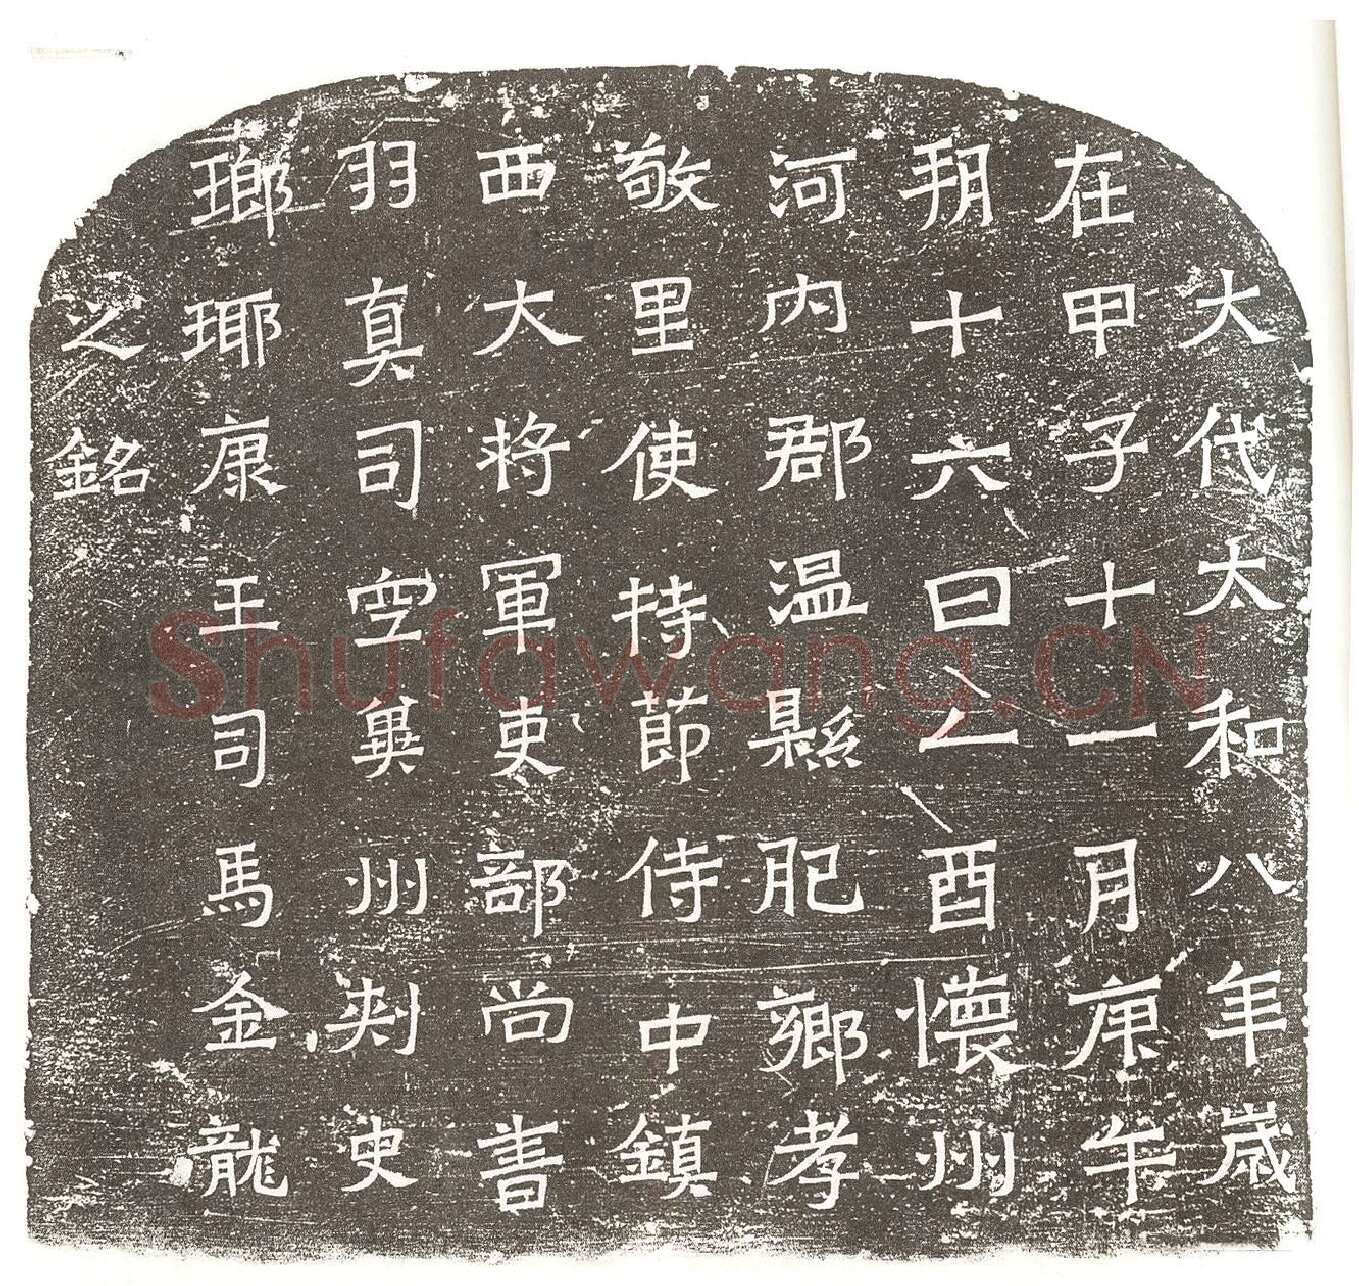 大代太和八年歲
在甲子十一月庚午
朔十六日乙酉懷州
河内郡温縣肥鄉孝
敬里使持節侍中鎮
西大將軍吏部尚書
羽真司空冀州刺史
瑯琊康王司馬金龍
之銘
Shufawang.CN